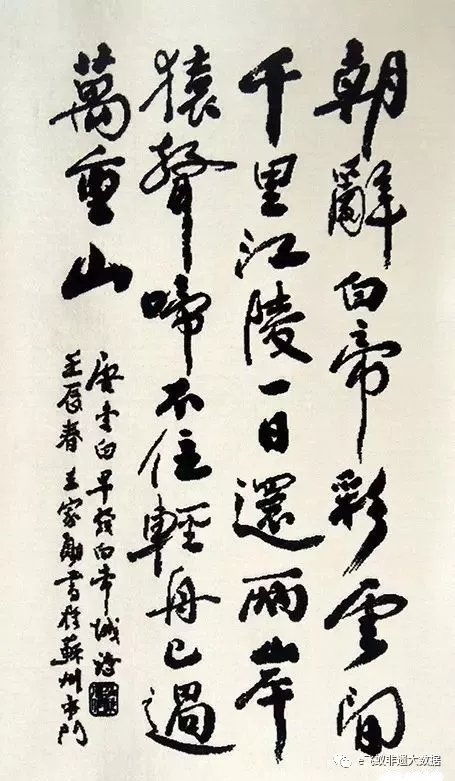 朝辭白帝彩雲間
千里江陵一日還兩岸
猿聲啼不住輕舟已過
萬重山
唐李白早發白帝城詩
壬辰春王家書於蘇州門
e飞蚁非遗大数据